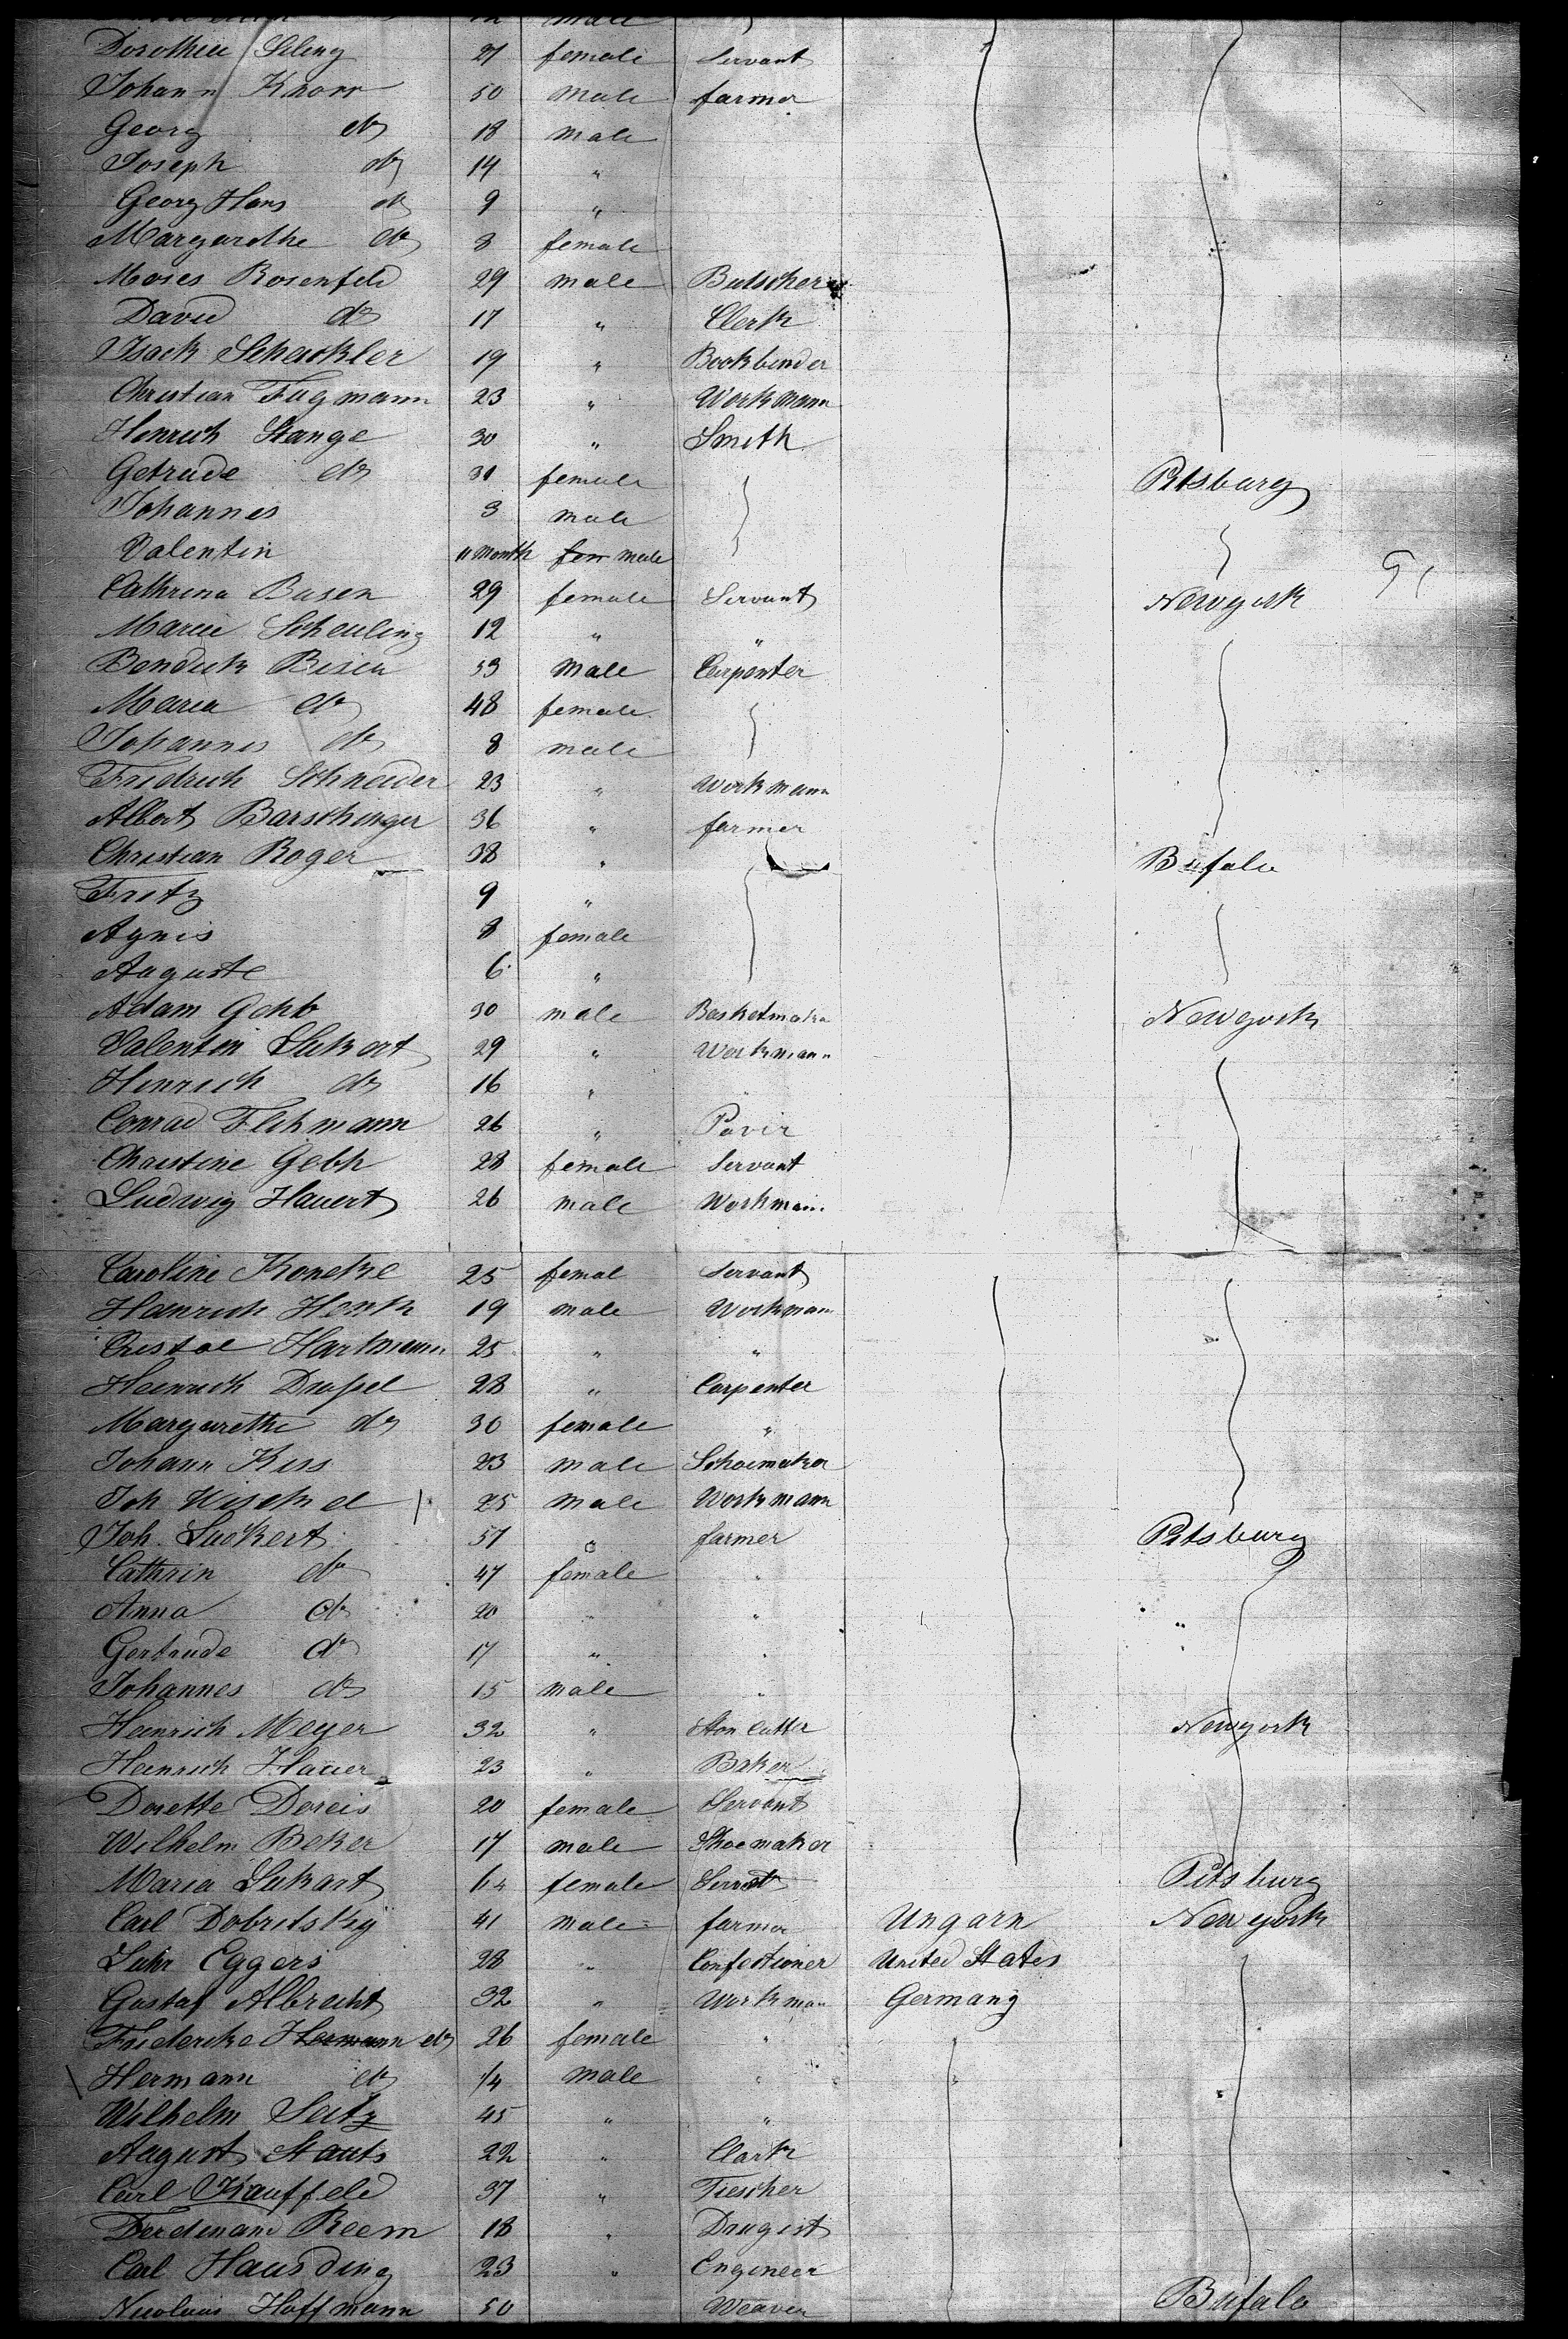 Dorothee 27 female Servant
Johann Knorr 50 male farmer
Georg do 18 male
Joseph do 14 "
Georg Hans do 9 "
Margarethe do 8 female
Moses Rosenfeld 29 male Butscher
David do 17 " Clerk
Isack Schackler 19 " Bookbinder
Christian Fugmann 23 " Workmann
Henrich Stange 30 " Smith
Getrude do 31 female Pitsburg
Johannes 3 male
Valentin 11 month male
Cathrina Basen 29 female Servant Newyork
Marie Scheuling 12 " "
Bendick 53 male Carpenter
Maria do 48 female
Johannes do 8 male
Fridrich Schneider 23 " Workmann
Albert Barschinger 36 " farmer
Christian Roger 38 " Bufalo
Fritz 9 "
Agnes 8 female
Auguste 6 "
Adam Gehb 30 male Basketmaker Newyork
Valentin Lukart 29 " Workmann
Henrich do 16 "
Conrad 26 "
Christine Gebh 28 female Servant
Ludwig Hauert 26 male Workman
Caroline Koneke 25 femal Servant
Heinrich Henk 19 male Workman
Hartmann 25 " "
Heinrich Drussel 28 " Carpenter
Margarethe do 30 female "
Johann Kiss 23 male Schoemaker
Joh 25 male Workmann
Joh. Luckert 57 " farmer Pitsburg
Cathrin do 47 female "
Anna do 20 " " "
Gertrude do 17 " "
Johannes do 15 male "
Heinrich Meyer 32 " Ston Cutter Newyork
Heinrich Hauer 23 " Baker
Dorette Doreis 20 female Servant
Wilhelm Beker 17 male Shoemaker
Maria Lukart female Pitsburg
Carl Dobritsky 41 male farmer Ungarn Newyork
Luhr Eggers 28 " Confectioner United States
Gustaf Albrecht 32 " Workman Germany
Friedericke Hermann do 26 female "
Hermann do 1/4 male "
Wilhelm Seitz 45 " "
August Stauts 22 " Clark
Carl Kauffeld 37 " Tiescher
Ferdinand Reem 18 " Drugist
Carl Hausding 23 " Engineer
Nicolaus Hoffmann 50 Weaver Bufalo